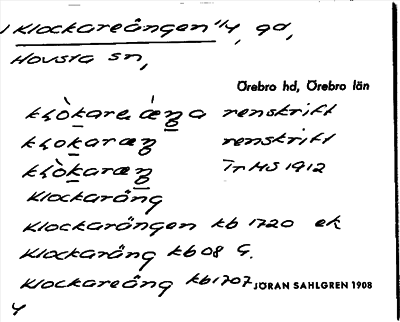 Klockareängen 1/4, gd,
Hovsta sn,
Örebro hd, Örebro län
renskrift
renskrift
Tr HS 1912
Klockaräng
Klockarängen kb 1720 ek
Klockaräng kb 08 G.
Klockareäng kb 1707
JÖRAN SAHLGREN 1908